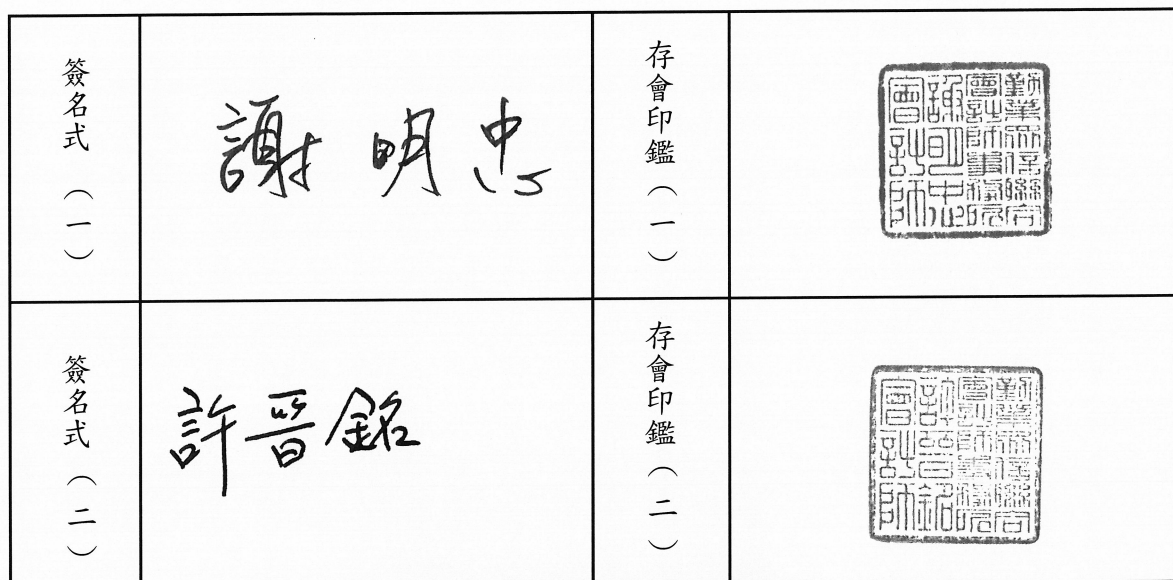 簽名式（一）
謝明忠
存會印鑑（一）
勤業眾信聯合
會計師事務所
謝明忠
會計師
簽名式（二）
許晉銘
存會印鑑（二）
勤業眾信聯合
會計師事務所
許晉銘
會計師